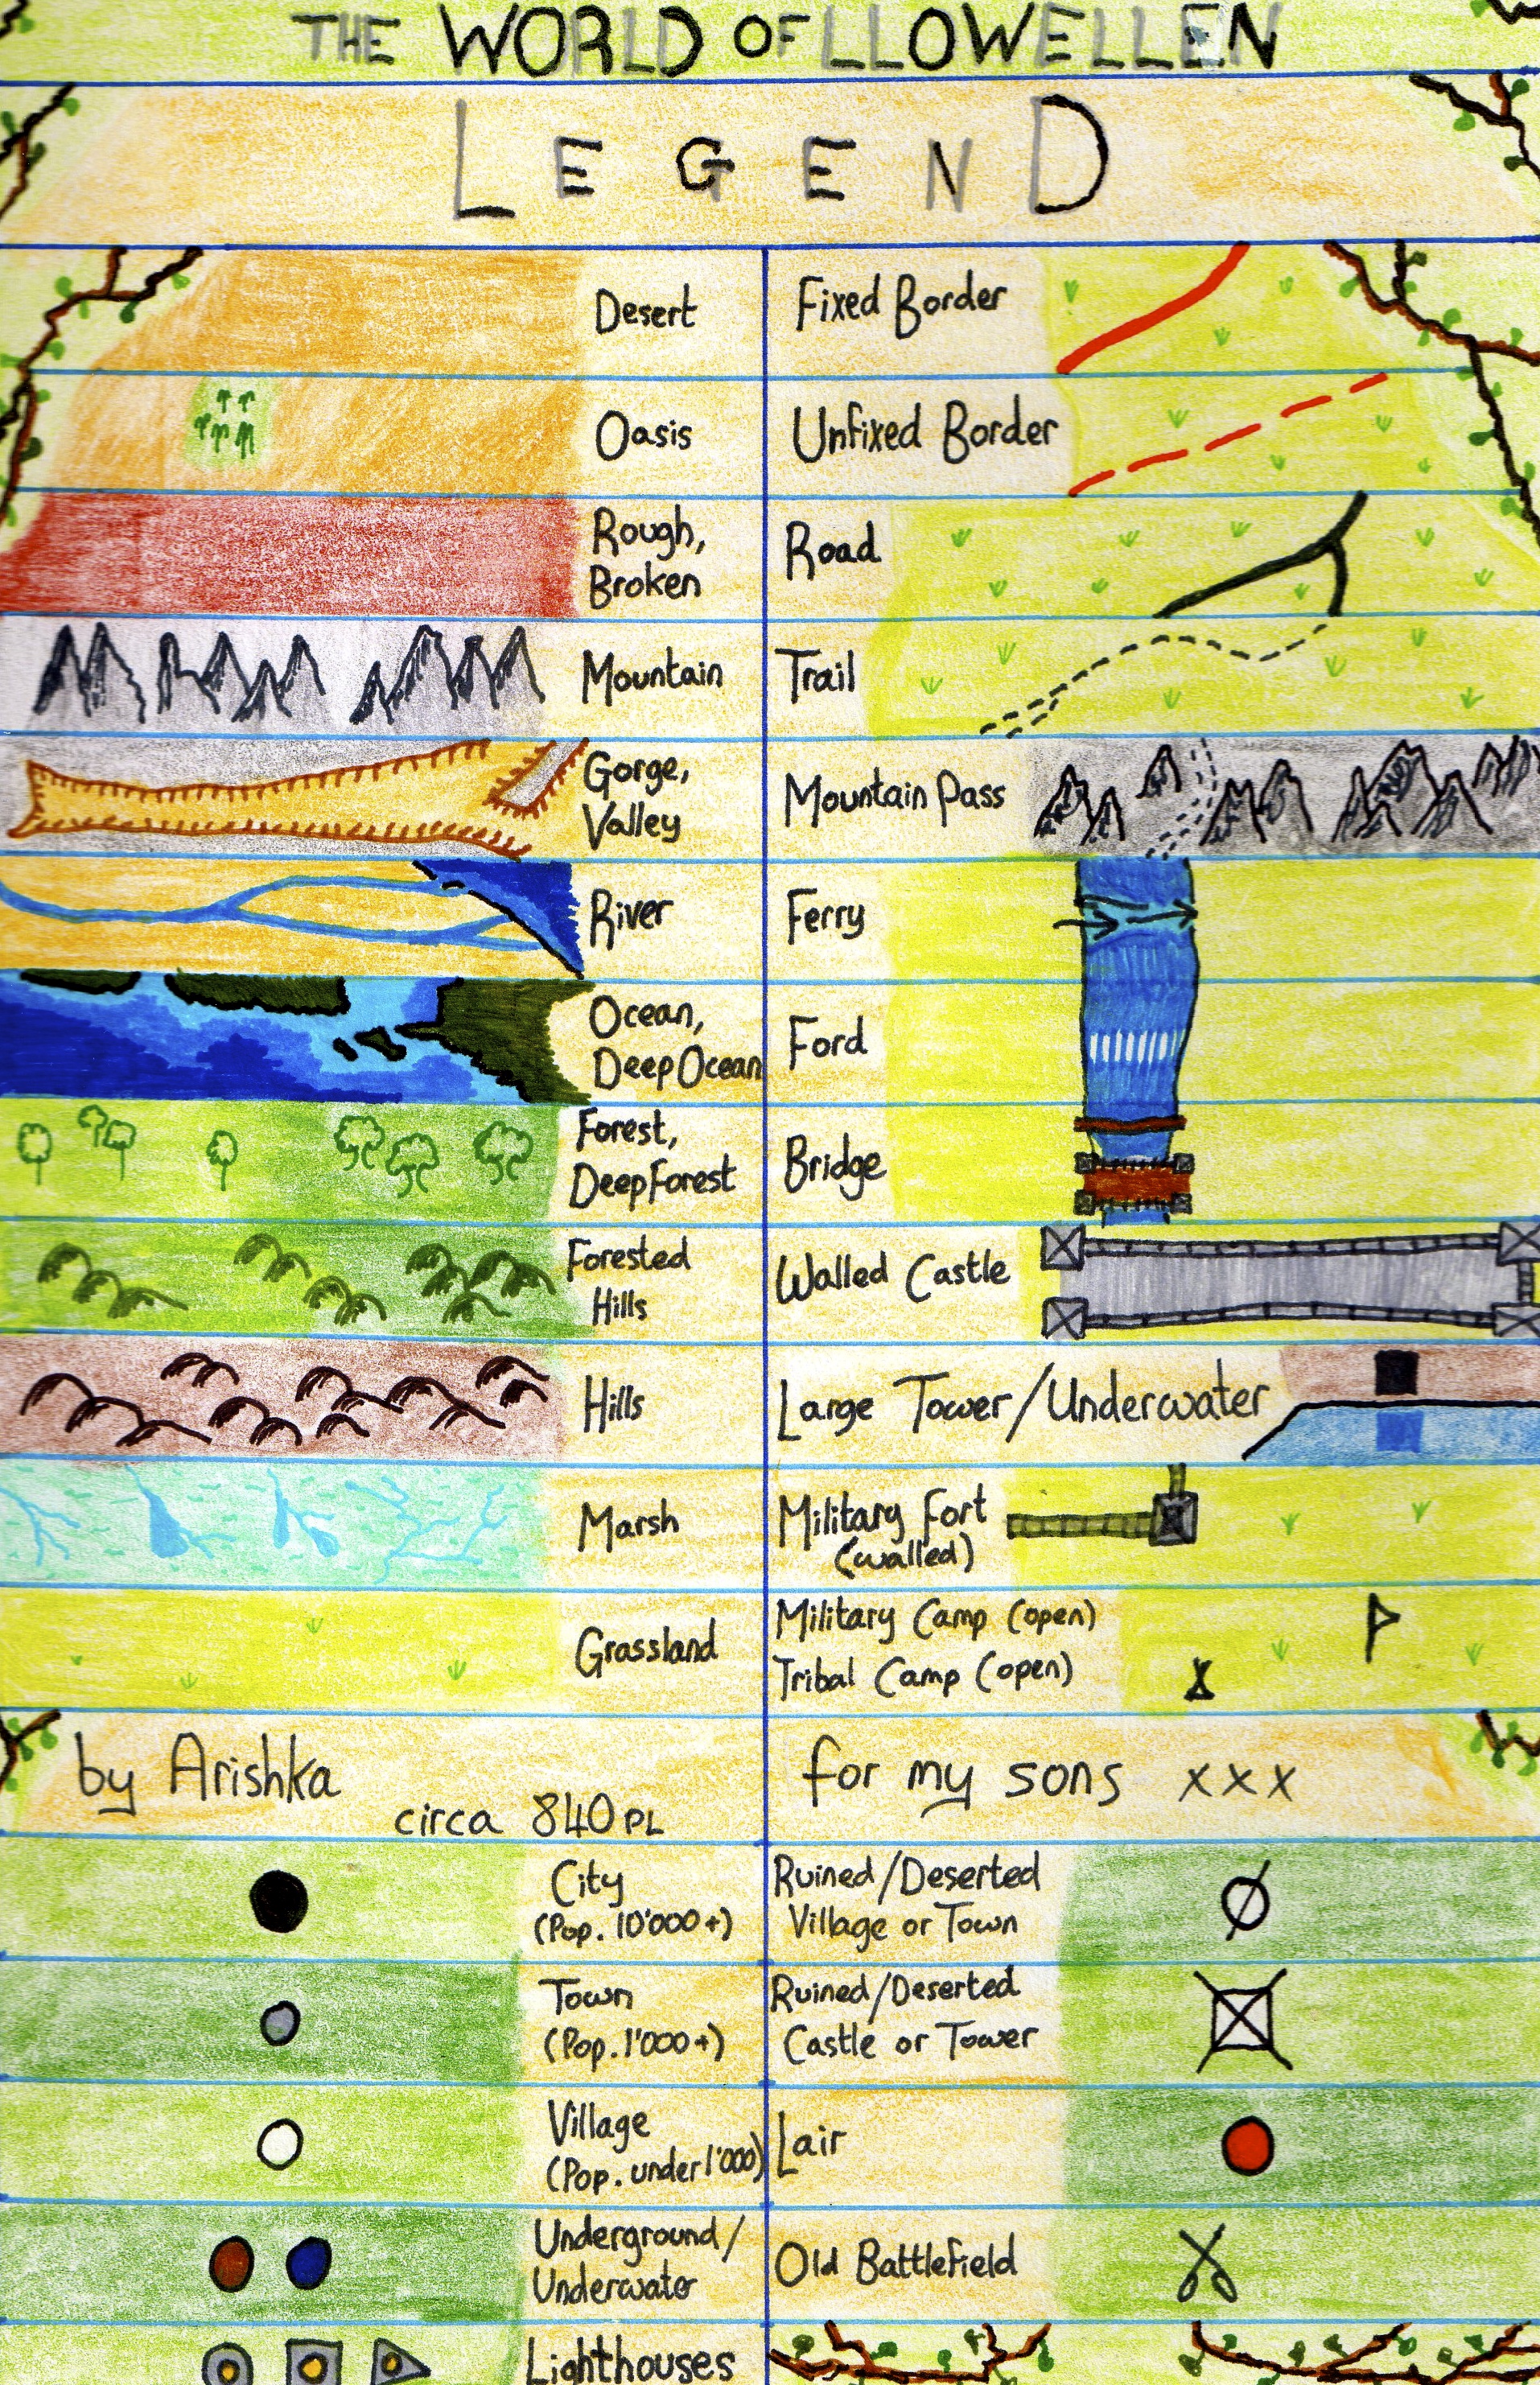 THE WORLD OF LLOWELLEN
LEGEND
Desert
Oasis
Rough,
Broken
Mountain
Gorge,
Valley
River
Ocean,
Deep Ocean
Forest,
Deep Forest
Forested
Hills
Hills
Marsh
Grassland
Fixed Border
Unfixed Border
Road
Trail
Mountain Pass
Ferry
Ford
Bridge
Walled Castle
Large Tower/Underwater
Military Fort
(walled)
Military Camp (open)
Tribal Camp (open)
by Arishka
circa 840 PL
for my sons xxx
City
(Pop. 10'000+)
Town
(Pop. 1'000+)
Village
(Pop. under 1'000)
Underground/
Underwater
Lighthouses
Ruined/Deserted
Village or Town
Ruined/Deserted
Castle or Tower
Lair
Old Battlefield